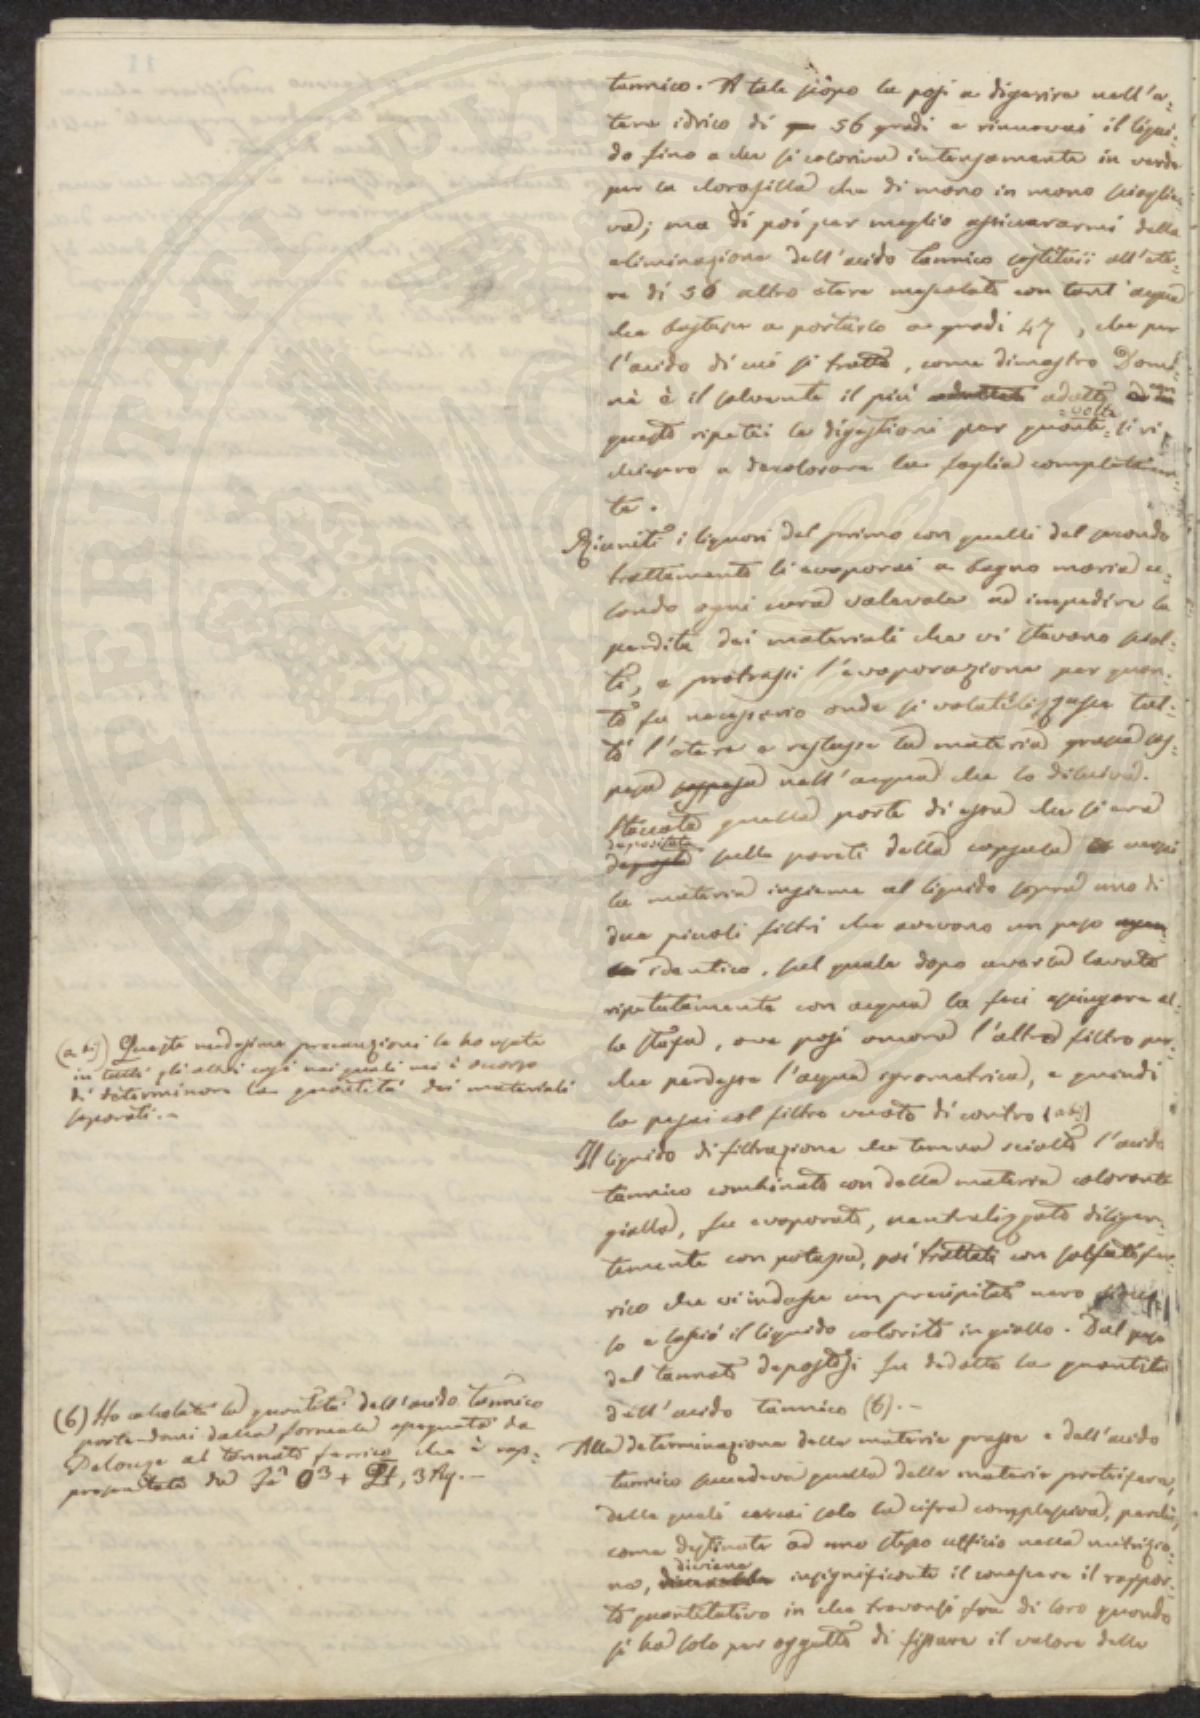 tannico. A tale scopo la posi a digerire nell'e-
tere idrico di 56 gradi e rinnovai il liqui-
do fino a che si coloriva intensamente in verde
per la clorofilla che di mano in mano scioglie-
va; ma di poi per meglio assicurarmi della
eliminazione dell'acido tannico sostituii all'ete-
re di 56 altro etere mescolato con tant'acqua
che bastasse a portarlo a gradi 47, che per
l'acido di cui si tratta, come dimostrò Domi-
nè è il solvente il più adatto
questo ripetei le digestioni per quante volte si ri-
chiesero a decolorare la foglia completamen-
te.
Riuniti i liquori del primo con quelli del secondo
trattamento li evaporai a bagno maria u-
sando ogni cura valevole ad impedire la
perdita dei materiali che vi stavano sciol-
ti, e protrassi l'evaporazione per quan-
to fu necessario onde si volatilizzasse tut-
to l'etere e restasse la materia grassa sos-
pesa sospesa nell'acqua che lo diluiva.
Staccata quella parte di essa che si era
depositata
deposta sulle pareti della capsula versai
la materia insieme al liquido sopra uno di
due piccoli filtri che avevano un peso
identico, sul quale dopo averla lavata
ripetutamente con acqua la feci asciugare al-
la stufa, ove posi ancora l'altro filtro per-
chè perdesse l'acqua igrometrica, e quindi
la pesai col filtro vuoto di contro (a bis)
Il liquido di filtrazione che teneva sciolto l'acido
tannico combinato con della materia colorante
gialla, fu evaporato, neutralizzato diligen-
temente con potassa, poi trattato con solfato fer-
rico che vi indusse un precipitato nero
so e lasciò il liquido colorito in giallo. Dal peso
del tannato depostosi fu dedotta la quantità
dell'acido tannico (b).-
Alla determinazione delle materie grasse e dell'acido
tannico succedeva quella delle materie proteiformi,
delle quali cercai solo la cifra complessiva, perchè,
come destinate ad uno stesso ufficio nella nutrizio-
ne, diviene insignificante il conoscere il rappor-
to quantitativo in che trovansi fra di loro quando
si ha solo per oggetto di fissare il valore delle
(a bis) Queste medesime precauzioni le ho usate
in tutti gli altri casi nei quali mi è occorso
di determinare la quantità dei materiali
separati.-
(b) Ho calcolata la quantità dell'acido tannico
partendomi dalla formula assegnata da
Pelouze al tannato ferrico che è rap-
presentata da Fe² O³ + Qt, 3 Aq.-